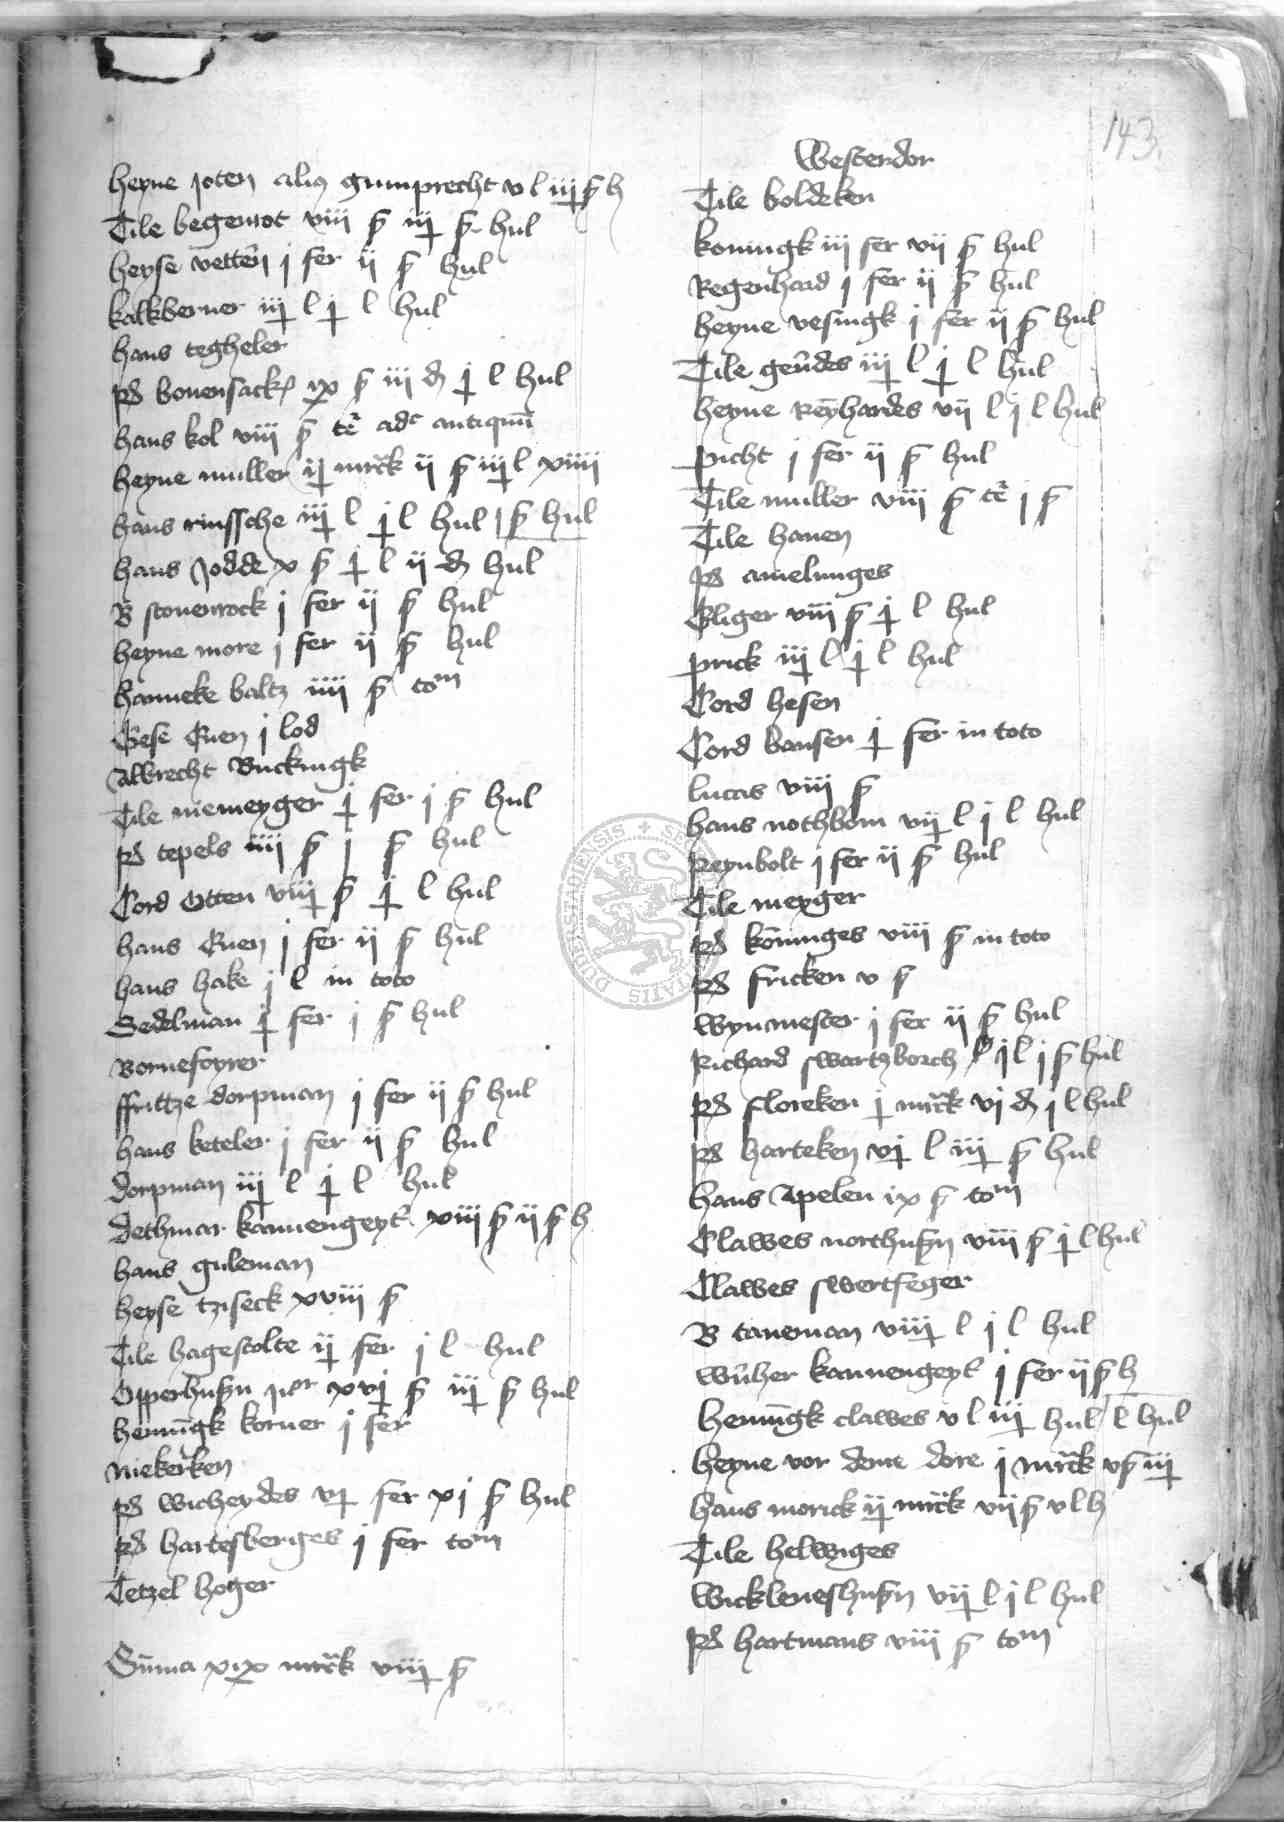 143.
heyne joten aliq gumprecht v l iiij ß h
Tile begenrot viii ß iij ß hul
heyse vetten j fer ij ß hul
kalkberner iij l j l hul
hans tegheler
hans kol viii ß
heyne muller ij mrck ij ß iij l xiiii
hans russche iij l j l hul j ß hul
hans Jodde x ß j l ij d hul
B stouenrock j fer ij ß hul
heyne more j fer ij ß hul
hanneke baltz iiii ß tom
Gese Cuen j lod
Albrecht Buckingk
Tile niemeyger j fer j ß hul
tepels iiii ß j ß hul
Cord Otten viij ß j l hul
hans Cuen j fer ij ß hul
hans hake j l in toto
Sedelman j fer j ß hul
Bornefoyrer
ffrittze dorpman j fer ij ß hul
hans keteler j fer ij ß hul
dorpman iij l j l hul
dethmar kannengeyt xiii ß ij ß h
hans guleman
heyse tziseck xviii ß
Tile hagestolte ij fer j l hul
Opperhusen xvj ß iij ß hul
henningk korner j fer
niekerken
wicheydes vj fer xj ß hul
hartesberges j fer tom
Tetzel hoger
Suma xix mrck viij ß
Westerdor
Tile boldeken
koningk iii fer vij ß hul
Regenhard j fer ij ß hul
heyne vesingk j fer ij ß hul
Tile geudes iij l j l hul
heyne Reyhardes vij l j l hul
picht j fer ij ß hul
Tile muller viii ß te j ß
Tile hanen
amelunges
Gliger viii ß j l hul
prick iij l j l hul
Cord hesen
Cord bansen j fer in toto
lucas viii ß
hans nothbom vij l j l hul
Reynbolt j fer ij ß hul
Tile meyger
koninges viii ß in toto
fricken v ß
wynmester j fer ij ß hul
Richard swartzborch j l j ß hul
floreken j mrck vj d j l hul
harteken vj l iij ß hul
hans Apelen ix ß tom
Clawes northusen viii ß j l hul
Clawes swertfeger
B taneman viij l j l hul
kannengeyt j fer ij ß h
henningk clawes v l iij hul l hul
heyne vor deme dore j mrck v ß iij
hans morick ij mrck vij ß v l h
Tile helwiges
wickleueshusen vij l j l hul
hartmans viii ß tom